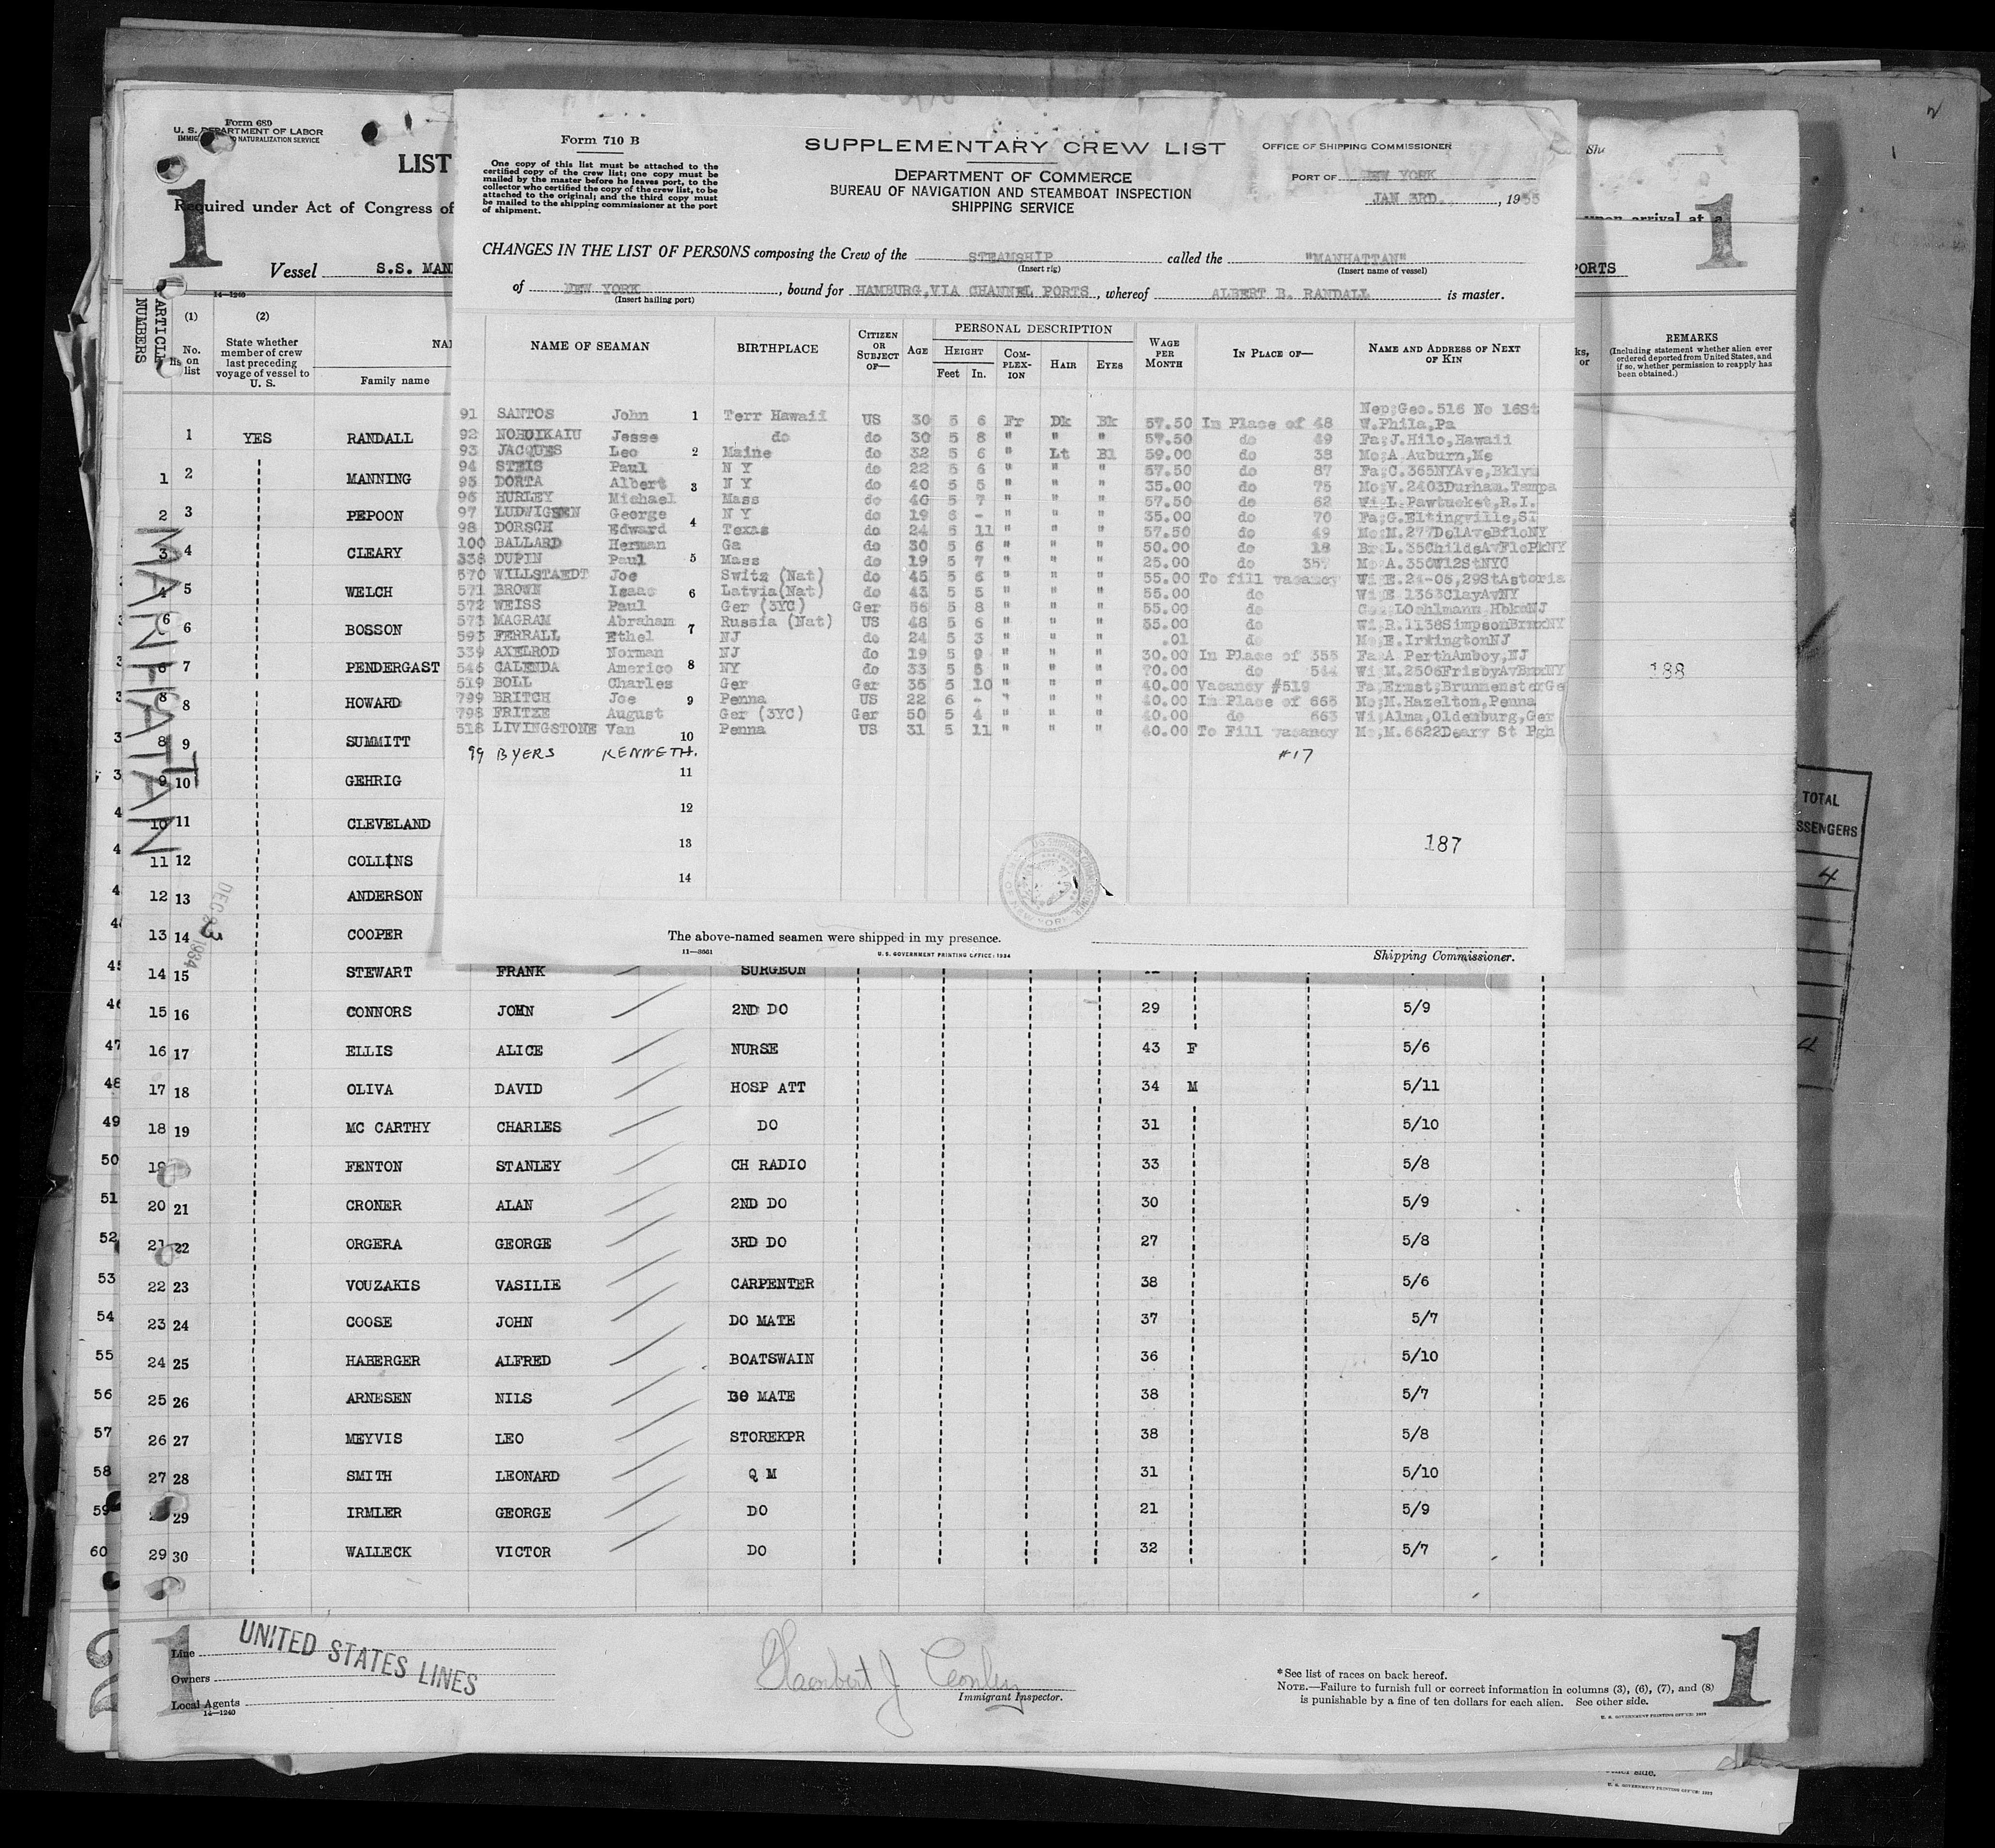 Form 689
U. S. DEPARTMENT OF LABOR
NATURALIZATION SERVICE
LIST
1
Required under Act of Congress of
Vessel S.S. MAN
14—1240
ARTICLE NUMBERS
(1) No. on list
(2) State whether member of crew last preceding voyage of vessel to U. S.
Family name
Form 710 B
One copy of this list must be attached to the
certified copy of the crew list; one copy must be
mailed by the master before he leaves port, to the
collector who certified the copy of the crew list, to be
attached to the original; and the third copy must
be mailed to the shipping commissioner at the port
of shipment.
SUPPLEMENTARY CREW LIST
DEPARTMENT OF COMMERCE
BUREAU OF NAVIGATION AND STEAMBOAT INSPECTION
SHIPPING SERVICE
OFFICE OF SHIPPING COMMISSIONER
PORT OF NEW YORK
JAN 3RD. , 1935
CHANGES IN THE LIST OF PERSONS composing the Crew of the STEAMSHIP called the "MANHATTAN"
(Insert rig) (Insert name of vessel)
of NEW YORK , bound for HAMBURG,VIA CHANNEL PORTS , whereof ALBERT B. RANDALL is master.
(Insert hailing port)
NAME OF SEAMAN BIRTHPLACE CITIZEN OR SUBJECT OF— AGE PERSONAL DESCRIPTION HEIGHT Feet In. COMPLEXION HAIR EYES WAGE PER MONTH IN PLACE OF— NAME AND ADDRESS OF NEXT OF KIN
Nep;Geo.516 No 16St
91 SANTOS John 1 Terr Hawaii US 30 5 6 Fr Dk Bk 57.50 In Place of 48 W.Phila,Pa
92 NOHOIKAIU Jesse do do 30 5 8 " " " 57.50 do 49 Fa;J.Hilo,Hawaii
93 JACQUES Leo 2 Maine do 32 5 6 " Lt Bl 59.00 do 38 Mo;A Auburn,Me
94 STEIS Paul N Y do 22 5 6 " " " 57.50 do 87 Fa;C.365NYAve,Bklyn
95 DORTA Albert 3 N Y do 40 5 5 " " " 35.00 do 75 Mo;V.2403Durham.Tampa
96 HURLEY Michael Mass do 40 5 7 " " " 57.50 do 62 Wi;L.Pawtucket,R.I.
97 LUDWIGSEN George N Y do 19 6 - " " " 35.00 do 70 Fa;G.Eltingville,SI
98 DORSCH Edward 4 Texas do 24 5 11 " " " 57.50 do 49 Mo;M.277DelAveBfloNY
100 BALLARD Herman Ga do 30 5 6 " " " 50.00 do 18 Br;L.35ChildsAvFloPkNY
338 DUPIN Paul 5 Mass do 19 5 7 " " " 25.00 do 357 Mo;A.350W12StNYC
570 WILLSTAEDT Joe Switz (Nat) do 45 5 6 " " " 55.00 To fill vacancy Wi;E.24-05,29StAstoria
571 BROWN Isaac 6 Latvia(Nat) do 43 5 5 " " " 55.00 do Wi;E 1363ClayAvNY
572 WEISS Paul Ger (3YC) Ger 56 5 8 " " " 55.00 do LOehlmann HbknNJ
573 MAGRAM Abraham 7 Russia (Nat) US 48 5 6 " " " 55.00 do Wi;R.1138SimpsonBrnxNY
593 FERRALL Ethel NJ do 24 5 3 " " " .01 do Mo;E.IrvingtonNJ
339 AXELROD Norman NJ do 19 5 9 " " " 30.00 In Place of 355 Fa;A PerthAmboy,NJ
546 CALENDA Americo 8 NY do 33 5 5 " " " 70.00 do 544 Wi;M.2506FrisbyAvBrnxNY
519 BOLL Charles Ger Ger 35 5 10 " " " 40.00 Vacancy #519 Fa;Ernst;BrunmensterGe
799 BRITCH Joe 9 Penna US 22 6 - " " " 40.00 In Place of 665 Mo;M.Hazelton,Penna
798 FRITZE August Ger (3YC) Ger 50 5 4 " " " 40.00 do 663 Wi;Alma,Oldenburg,Ger
518 LIVINGSTONE Van 10 Penna US 31 5 11 " " " 40.00 To Fill vacancy Mo,M.6622Deary St Pgh
99 BYERS KENNETH. #17
11
12
13
14
187
The above-named seamen were shipped in my presence.
Shipping Commissioner.
11—8661 U. S. GOVERNMENT PRINTING OFFICE: 1934
upon arrival at a
1
PORTS
REMARKS
(Including statement whether alien ever
ordered deported from United States, and
if so, whether permission to reapply has
been obtained.)
188
TOTAL
SSENGERS
4
4
MANHATTAN
DEC 23 1934
1 YES RANDALL
1 2 MANNING
2 3 PEPOON
3 4 CLEARY
4 5 WELCH
6 BOSSON
6 7 PENDERGAST
8 HOWARD
8 9 SUMMITT
9 10 GEHRIG
10 11 CLEVELAND
11 12 COLLINS
12 13 ANDERSON
13 14 COOPER
14 15 STEWART FRANK SURGEON
15 16 CONNORS JOHN 2ND DO 29 5/9
16 17 ELLIS ALICE NURSE 43 F 5/6
17 18 OLIVA DAVID HOSP ATT 34 M 5/11
18 19 MC CARTHY CHARLES DO 31 5/10
19 FENTON STANLEY CH RADIO 33 5/8
20 21 CRONER ALAN 2ND DO 30 5/9
21 22 ORGERA GEORGE 3RD DO 27 5/8
22 23 VOUZAKIS VASILIE CARPENTER 38 5/6
23 24 COOSE JOHN DO MATE 37 5/7
24 25 HABERGER ALFRED BOATSWAIN 36 5/10
25 26 ARNESEN NILS DO MATE 38 5/7
26 27 MEYVIS LEO STOREKPR 38 5/8
27 28 SMITH LEONARD Q M 31 5/10
29 IRMLER GEORGE DO 21 5/9
29 30 WALLECK VICTOR DO 32 5/7
47
48
49
50
51
52
53
54
55
56
57
58
59
60
2
1
Line
UNITED STATES LINES
Owners
Local Agents
14—1240
Herbert J Conley
Immigrant Inspector.
*See list of races on back hereof.
NOTE.—Failure to furnish full or correct information in columns (3), (6), (7), and (8)
is punishable by a fine of ten dollars for each alien. See other side.
U. S. GOVERNMENT PRINTING OFFICE: 1933
1